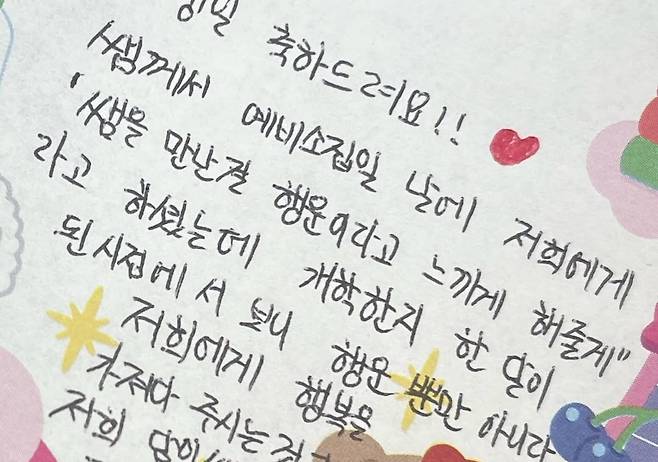 축하드려요!!
쌤께서 예비소집일 날에 저희에게
'쌤을 만난걸 행운이라고 느끼게 해줄게"
라고 하셨는데 개학한지 한 달이
된 시점에서 보니 행운 뿐만 아니라
저희에게 행복을
가져다 주시는
저희 담이